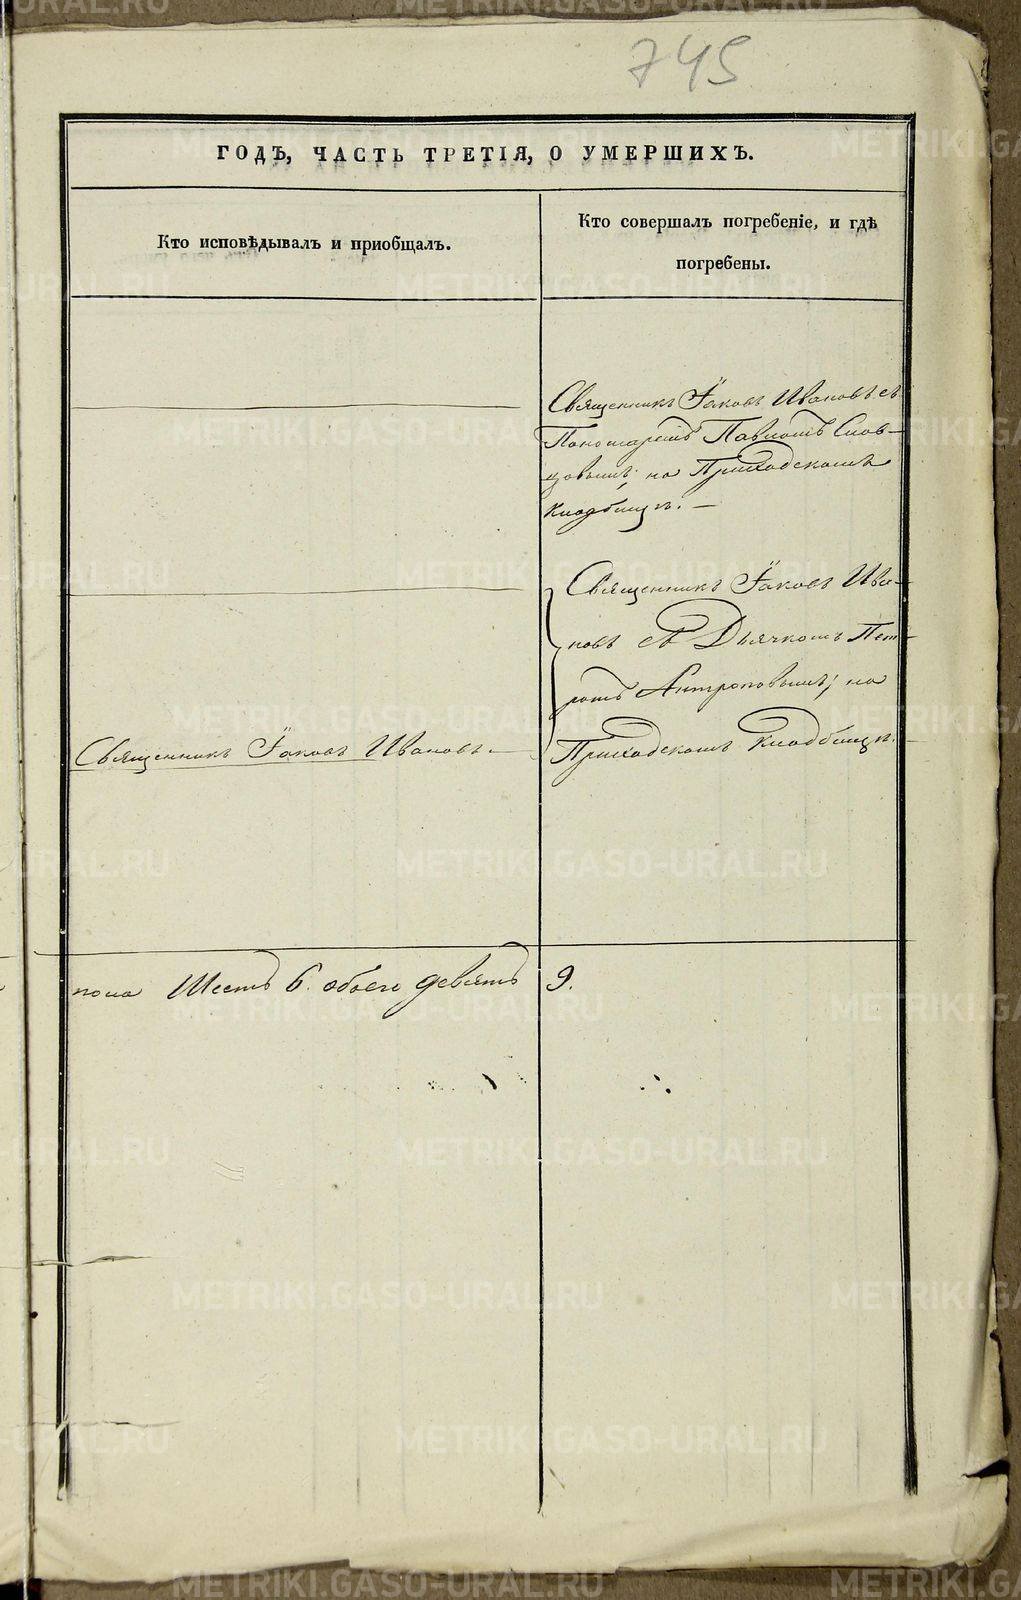 745
ГОДЪ, ЧАСТЬ ТРЕТІЯ, О УМЕРШИХЪ.
Кто исповѣдывалъ и приобщалъ.
Кто совершалъ погребеніе, и гдѣ
погребены.
Священникъ Іаковъ Ивановъ съ
Пономаремъ Павломъ Слов-
цовымъ; на Приходскомъ
кладбищѣ. —
Священникъ Іаковъ Ива-
новъ съ Дьячкомъ Пет-
ромъ Антроповымъ; на
Приходскомъ кладбищѣ.
Священникъ Іаковъ Ивановъ. —
пола Шесть 6. обоего девять 9.
METRIKI.GASO-URAL.RU